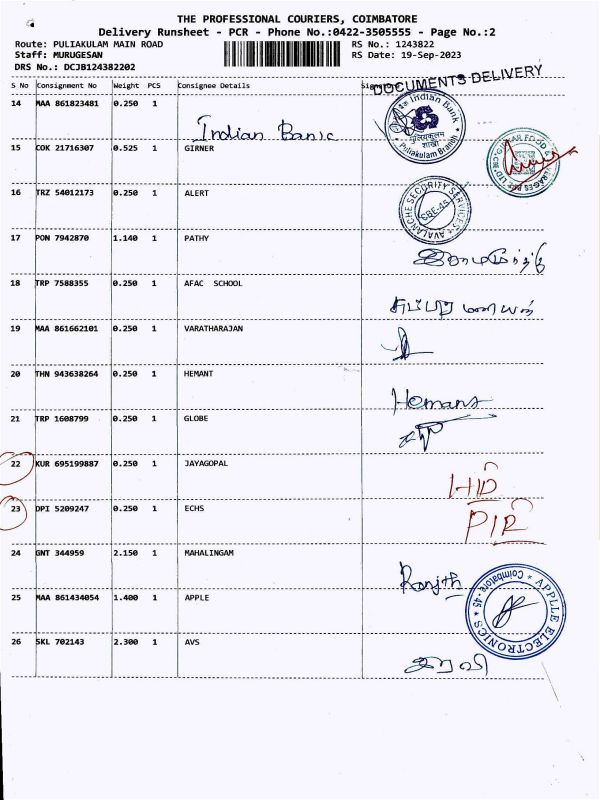 THE PROFESSIONAL COURIERS, COIMBATORE
Delivery Runsheet - PCR - Phone No.:0422-3505555 - Page No.:2
Route: PULIAKULAM MAIN ROAD RS No.: 1243822
Staff: MURUGESAN RS Date: 19-Sep-2023
DRS No.: DCJB124382202
DOCUMENTS DELIVERY
S No Consignment No Weight PCS Consignee Details
14 MAA 861823481 0.250 1
Indian Bank
Indian Bank
புலியகுளம்
शाखा
Puliakulam Branch
15 COK 21716307 0.525 1 GIRNER
16 TRZ 54012173 0.250 1 ALERT
AVALANCHE SECURITY SERVICES
CBE-45
17 PON 7942870 1.140 1 PATHY
18 TRP 7588355 0.250 1 AFAC SCHOOL
19 MAA 861662101 0.250 1 VARATHARAJAN
20 THN 943638264 0.250 1 HEMANT
21 TRP 1608799 0.250 1 GLOBE
22 KUR 695199887 0.250 1 JAYAGOPAL
23 DPI 5209247 0.250 1 ECHS
24 GNT 344959 2.150 1 MAHALINGAM
Ranjith
25 MAA 861434054 1.400 1 APPLE
APPLLE ELECTRONICS
Coimbatore - 45
26 SKL 702143 2.300 1 AVS